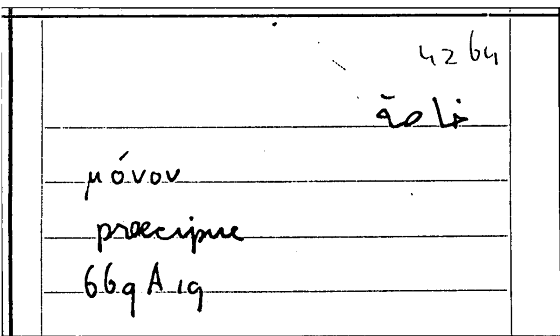 4264
خاصة
μόνον
praecipue
669 A 19